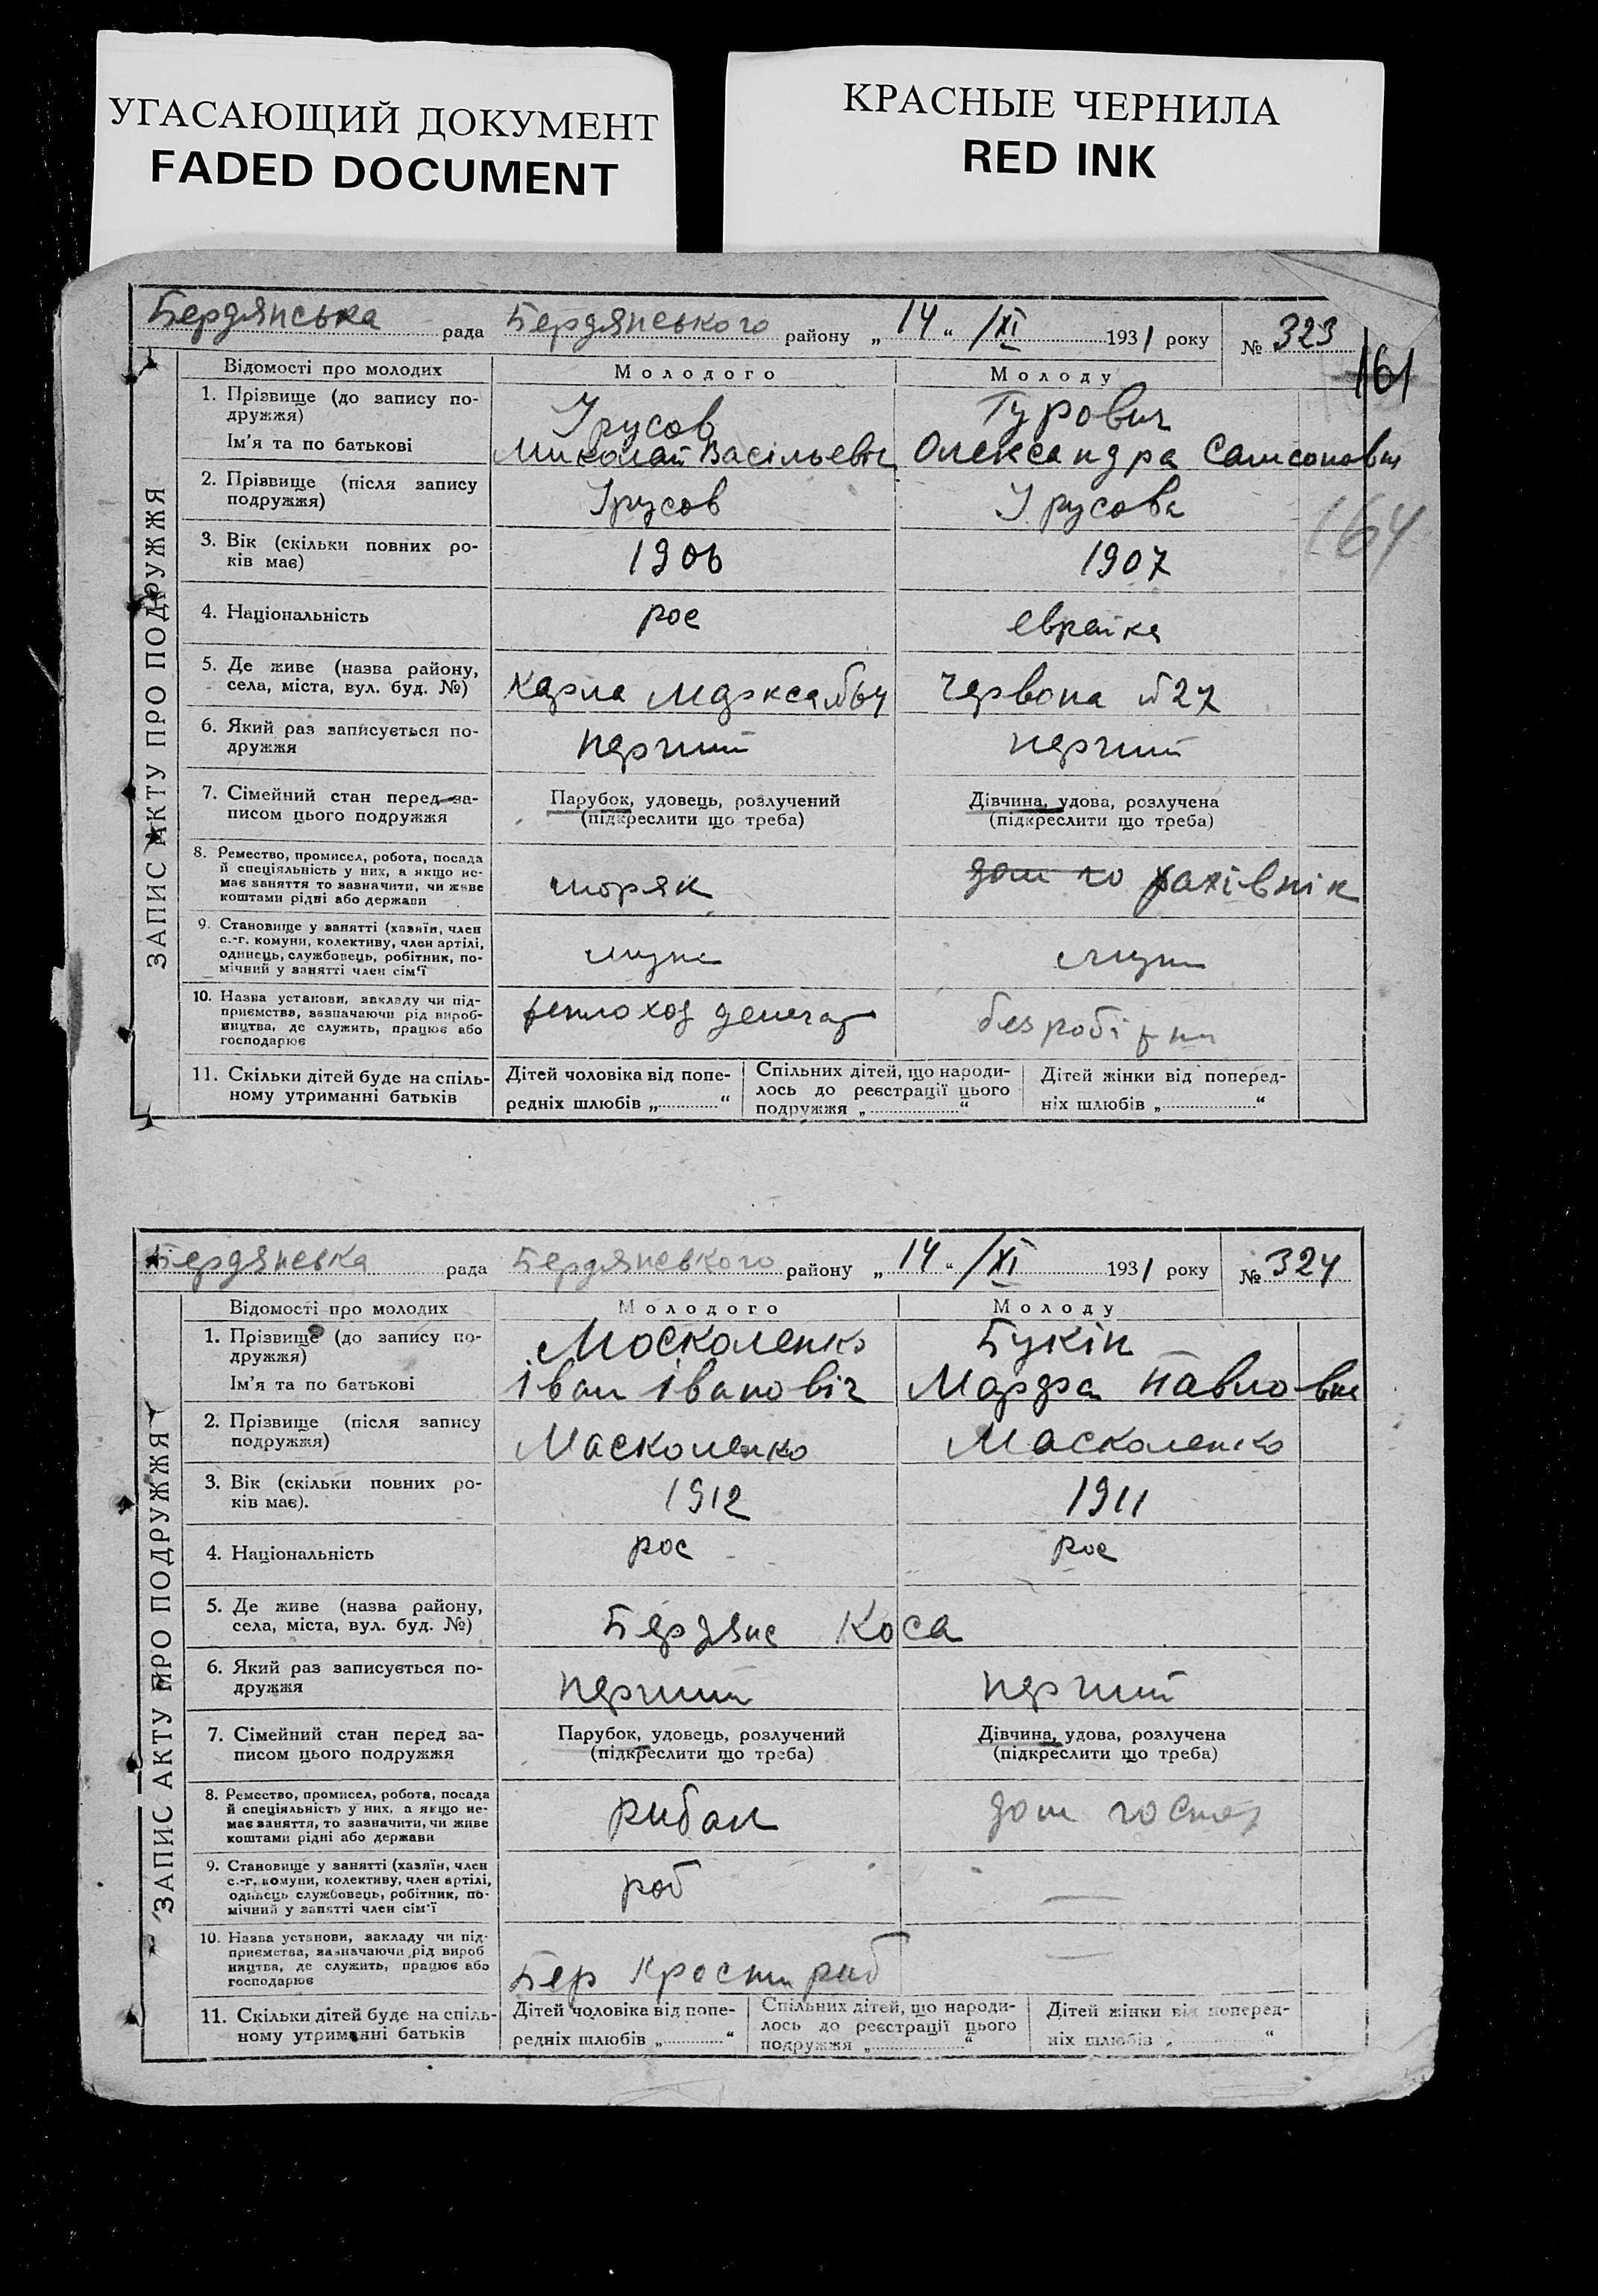 УГАСАЮЩИЙ ДОКУМЕНТ
FADED DOCUMENT
КРАСНЫЕ ЧЕРНИЛА
RED INK
Бердянська рада Бердянського району „14“ /XI 1931 року № 323
161
164
ЗАПИС АКТУ ПРО ПОДРУЖЖЯ
Відомості про молодих Молодого Молоду
1. Прізвище (до запису по-
дружжя)
Урусов Гурович
Ім'я та по батькові Миколай Васільевіч Олександра Самсоновна
2. Прізвище (після запису
подружжя)
Урусов Урусова
3. Вік (скільки повних ро-
ків має)
1906 1907
4. Національність рос евраїка
5. Де живе (назва району,
села, міста, вул. буд. №)
Карла Маркса №64 Червона №27
6. Який раз записується по-
дружжя
перчий перчий
7. Сімейний стан перед за-
писом цього подружжя
Парубок, удовець, розлучений
(підкреслити що треба)
Дівчина, удова, розлучена
(підкреслити що треба)
8. Ремество, промисел, робота, посада
й спеціяльність у них, а якщо не-
має заняття то зазначити, чи живе
коштами рідні або держави
моряк дом го рахівнік
9. Становище у занятті (хазяїн, член
с.-г. комуни, колективу, член артілі,
одинець, службовець, робітник, по-
мічний у занятті член сім'ї
10. Назва установи, закладу чи під-
приємства, зазначаючи рід вироб-
ництва, де служить, працює або
господарює
теплоход безробітн
11. Скільки дітей буде на спіль-
ному утриманні батьків
Дітей чоловіка від попе-
редніх шлюбів „ “
Спільних дітей, що народи-
лось до реєстрації цього
подружжя „ “
Дітей жінки від поперед-
ніх шлюбів „ “
Бердянська рада Бердянського району „14“ /XI 1931 року № 324
ЗАПИС АКТУ ПРО ПОДРУЖЖЯ
Відомості про молодих Молодого Молоду
1. Прізвище (до запису по-
дружжя)
Москаленко Букін
Ім'я та по батькові Іван Івановіч Марфа Павловна
2. Прізвище (після запису
подружжя)
Маскаленко Маскаленко
3. Вік (скільки повних ро-
ків має).
1912 1911
4. Національність рос рос
5. Де живе (назва району,
села, міста, вул. буд. №)
Бердянс Коса
6. Який раз записується по-
дружжя
перчий перчий
7. Сімейний стан перед за-
писом цього подружжя
Парубок, удовець, розлучений
(підкреслити що треба)
Дівчина, удова, розлучена
(підкреслити що треба)
8. Ремество, промисел, робота, посада
й спеціяльність у них, а якщо не-
має заняття, то зазначити, чи живе
коштами рідні або держави
рибал дом
9. Становище у занятті (хазяїн, член
с.-г. комуни, колективу, член артілі,
одинець службовець, робітник, по-
мічний у занятті член сім'ї
роб —
10. Назва установи, закладу чи під-
приємства, зазначаючи рід вироб
ництва, де служить, працює або
господарює
Бер риб —
11. Скільки дітей буде на спіль-
ному утриманні батьків
Дітей чоловіка від попе-
редніх шлюбів „ “
Спільних дітей, що народи-
лось до реєстрації цього
подружжя „ “
Дітей жінки від поперед-
ніх шлюбів „ “